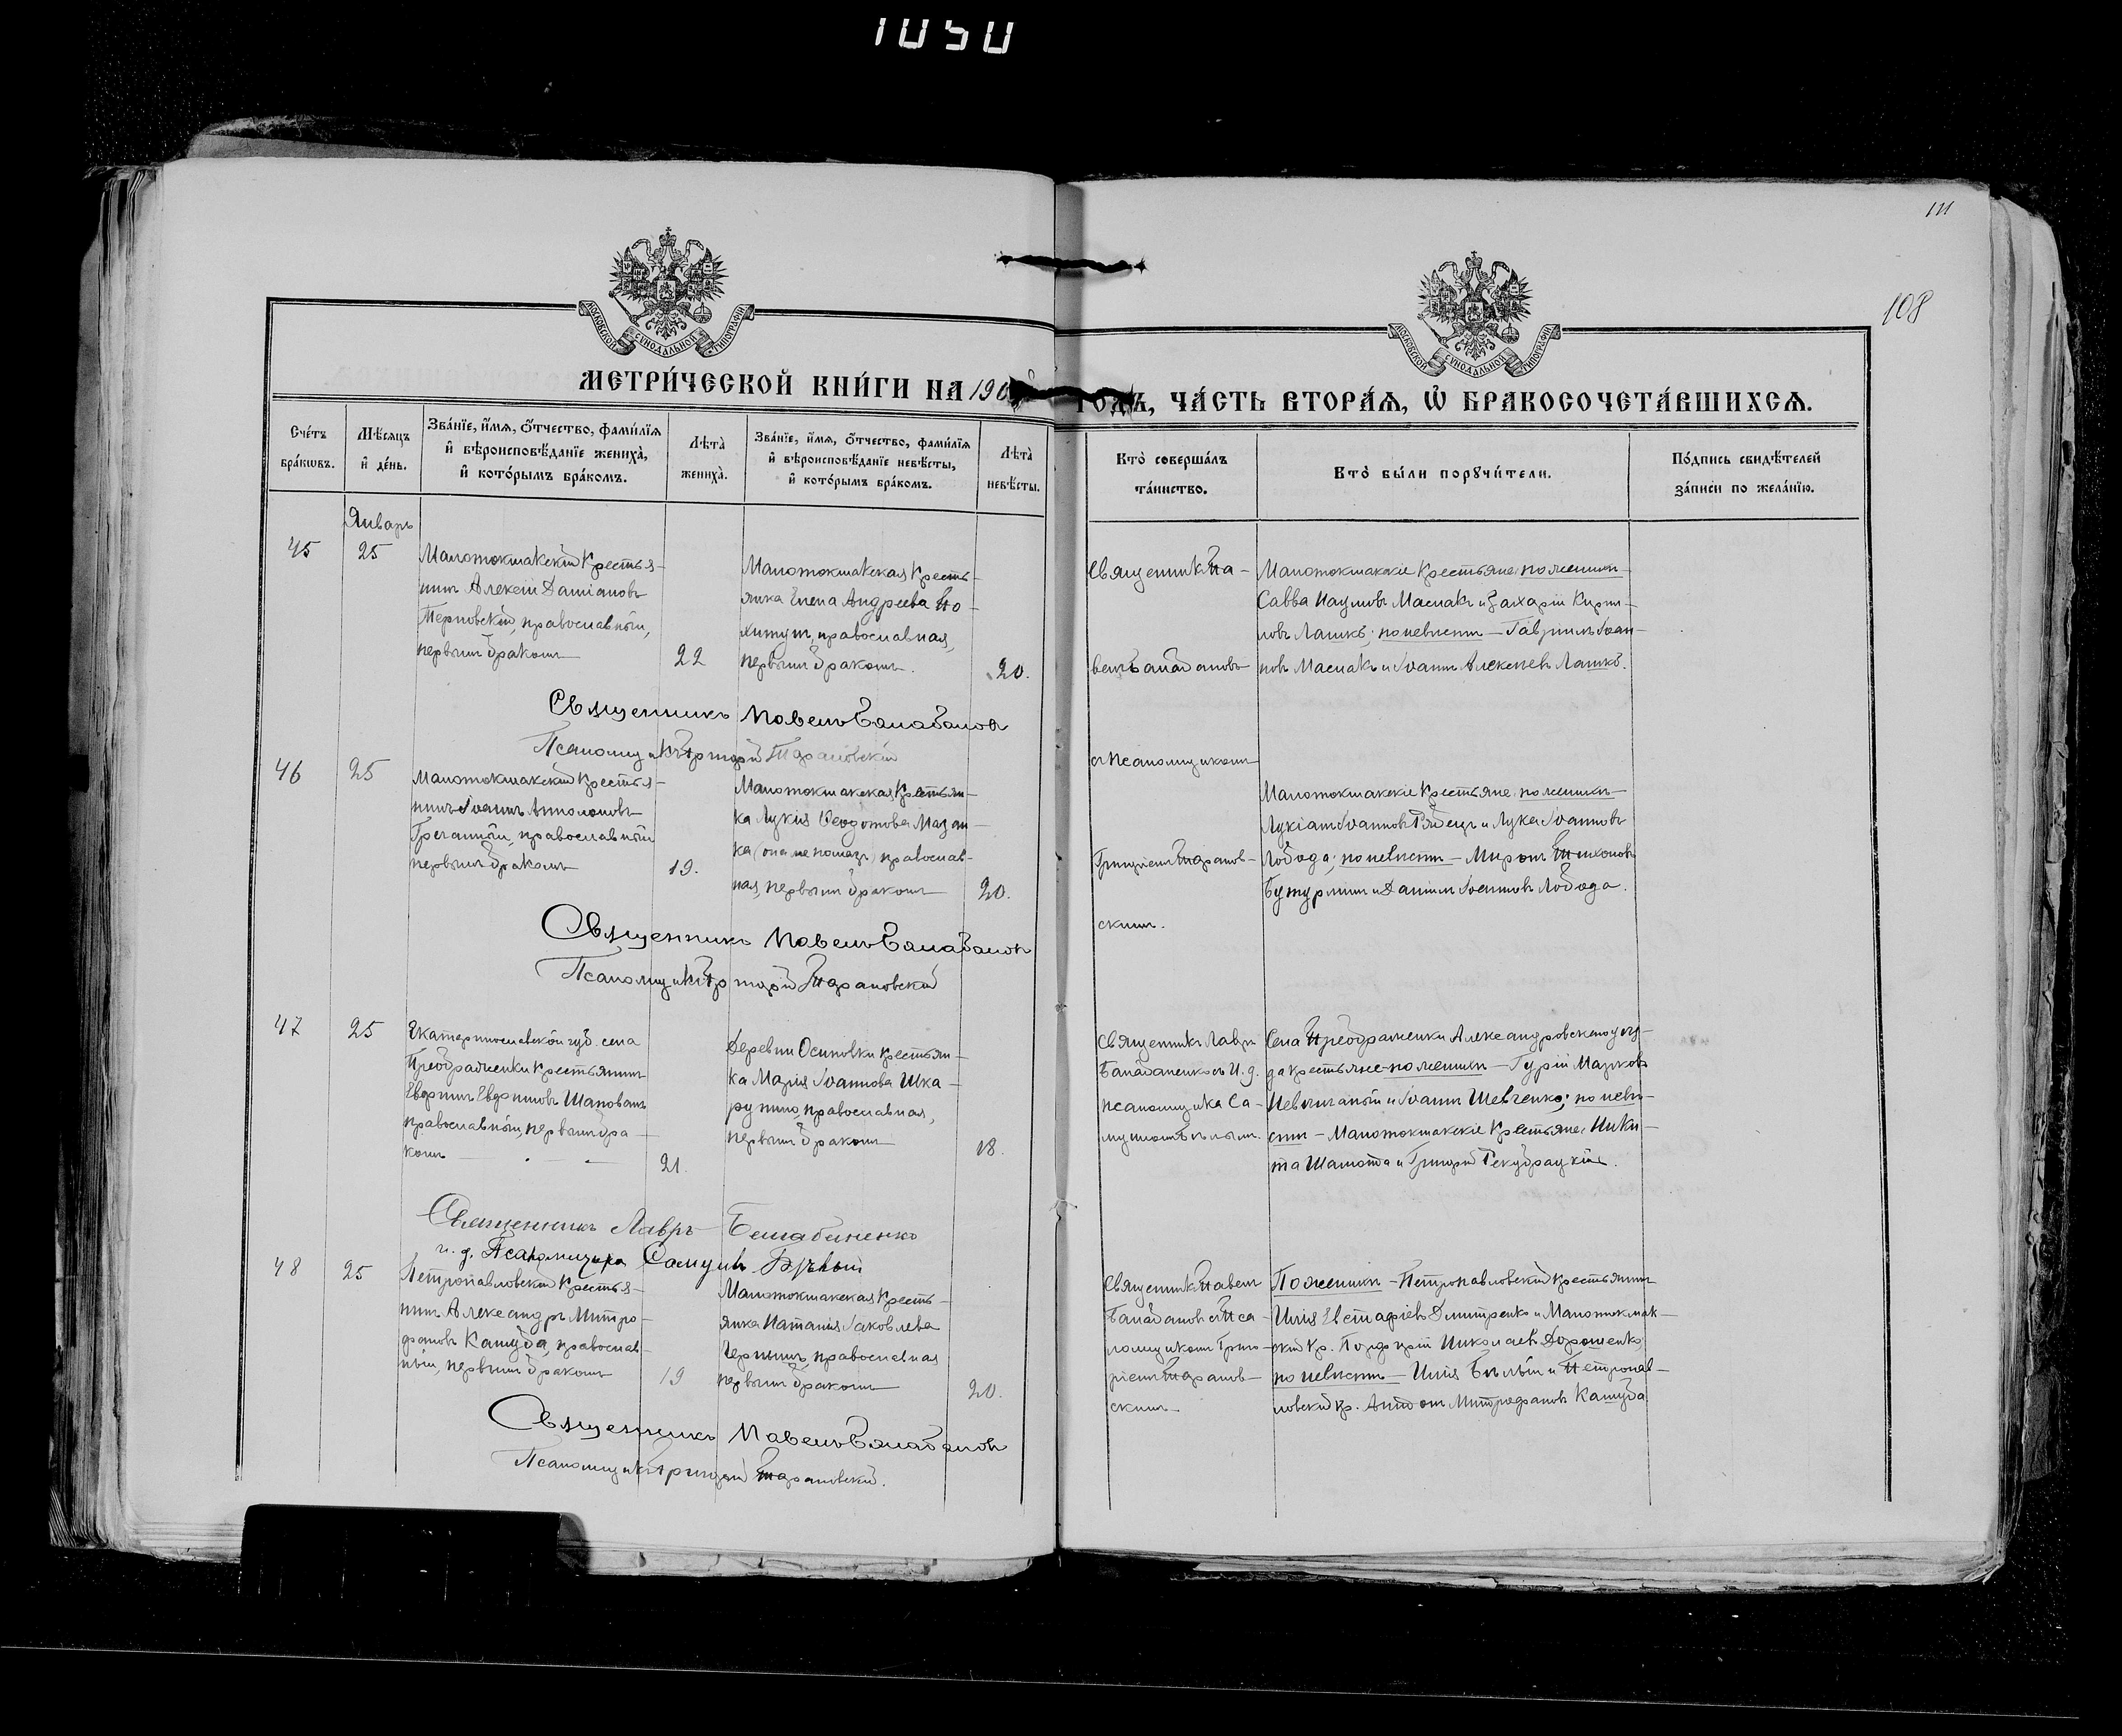 1050
111
108
МОСКОВСКОЙ СѴНОДАЛЬНОЙ ТИПОГРАФІИ
МОСКОВСКОЙ СѴНОДАЛЬНОЙ ТИПОГРАФІИ
МЕТРИ́ЧЕСКОЙ КНИ́ГИ НА 190
ГОДЪ, ЧА́СТЬ ВТОРА́Я, Ѡ҆ БРАКОСОЧЕТА́ВШИХСЯ.
Сче́тъ бра́кѡвъ.
Мѣ́сяцъ и҆ де́нь.
Зва́нїе, и҆́мя, ѻ҆́тчество, фами́лїя
и҆ вѣроисповѣ́данїе жениха̀,
и҆ кото́рымъ бра́комъ.
Лѣта̀ жениха̀.
Зва́нїе, и҆́мя, ѻ҆́тчество, фами́лїя
и҆ вѣроисповѣ́данїе невѣ́сты,
и҆ кото́рымъ бра́комъ.
Лѣта̀ невѣ́сты.
Кто̀ соверша́лъ та́инство.
Кто̀ бы́ли порꙋчи́тели.
По́дпись свидѣ́телей за́писи по жела́нїю.
Январь
45
25
Малотокмакскій крестья-
нинъ Алексій Даміановъ
Терновскій, православный,
первымъ бракомъ
22
Малотокмакская кресть-
янка Елена Андреева По-
православная,
первымъ бракомъ.
20.
Священникъ Па-
велъ Балабановъ
съ псаломщикомъ
Григоріемъ Таранов-
скимъ.
Малотокмакскіе крестьяне: по женихѣ
Савва Наумовъ Маслакъ и Захарій Кирил-
ловъ Ляшко; по невѣстѣ – Гавріилъ Іоан-
новъ Маслакъ и Іоаннъ Алексѣевъ Ляшко.
Священникъ Павелъ Балабановъ
Псаломщикъ Григорій Тарановскій
46
25
Малотокмакскій крестья-
нинъ Іоаннъ Антоновъ
Гречаный, православный
первымъ бракомъ
19.
Малотокмакская крестьян-
ка Лукія Ѳеодотова Мазан-
ка православ-
ная, первымъ бракомъ
20.
Малотокмакскіе крестьяне: по женихѣ
Лукіанъ Іоанновъ и Лука Іоанновъ
Лобода; по невѣстѣ – Миронъ Тихоновъ
Бутурлимъ и Даніилъ Іоанновъ Лобода.
Священникъ Павелъ Балабановъ
Псаломщикъ Григорій Тарановскій
47
25
Екатеринославской губ. села
Преображенки крестьянинъ
Евфимъ Евфимовъ Шаповалъ
православный, первымъ бра-
комъ
21.
Деревни Осиповки крестьян-
ка Марія Іоаннова Шка-
рупино, православная,
первымъ бракомъ
18.
Священникъ Лавръ
Балабаненко съ И. д.
псаломщика Са-
муиломъ Бѣлымъ.
Села Преображенки Александровскаго уѣз-
да крестьяне: по женихѣ – Гурій Марковъ
и Іоаннъ Шевченко; по невѣ-
стѣ – Малотокмакскіе крестьяне: Ники-
та Шамота и Григорій
Священникъ Лавръ Балабаненко
и. д. Псаломщика Самуилъ Бѣлый
48
25
Петропавловскій крестья-
нинъ Александръ Митро-
фановъ Кашуба, православ-
ный, первымъ бракомъ
19
Малотокмакская кресть-
янка Наталія Іаковлева
Чернышъ, православная
первымъ бракомъ
20.
Священникъ Павелъ
Балабановъ съ Пса-
ломщикомъ Григо-
ріемъ Таранов-
скимъ
По женихѣ – Петропавловскій крестьянинъ
Илія Евстафіевъ Дмитренко и Малотокмак-
скій кр. Порфирій Николаевъ Дорошенко,
по невѣстѣ – Илія Бѣлый и Петропав-
ловскій кр. Антонъ Митрофановъ Кашуба
Священникъ Павелъ Балабановъ
Псаломщикъ Григорій Тарановскій.